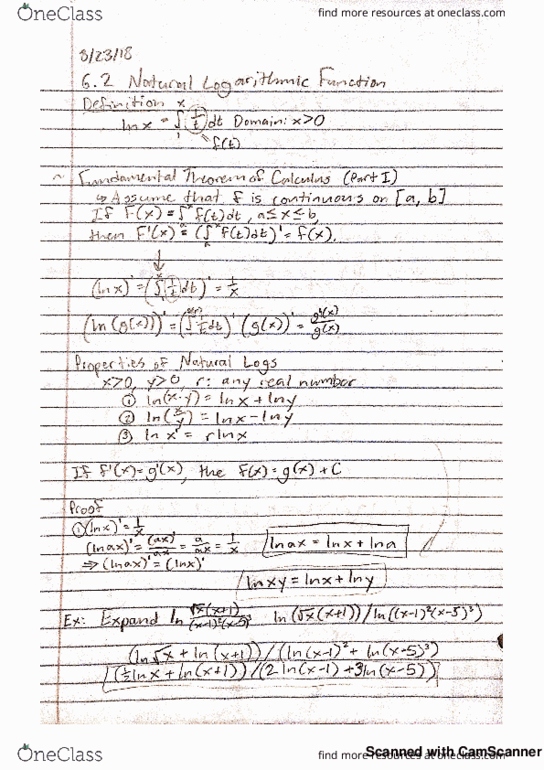 OneClass
find more resources at oneclass.com
8/23/18
6.2 Natural Logarithmic Function
Definition
ln x = ∫₁ˣ (1/t) dt Domain: x>0
f(t)
~ Fundamental Theorem of Calculus (Part I)
↳ Assume that f is continuous on [a, b]
If F(x) = ∫ₐˣ f(t)dt, a≤x≤b,
then F'(x) = (∫ₐˣ f(t)dt)' = f(x).
↓
(ln x)' = (∫₁ˣ (1/t) db)' = 1/x
(ln(g(x)))' = (∫ 1/t dt)' (g(x))' = g'(x)/g(x)
Properties of Natural Logs
x>0, y>0, r: any real number
① ln(x·y) = lnx + lny
② ln(x/y) = lnx - lny
③ ln xʳ = r lnx
If f'(x) = g'(x), the f(x) = g(x) + C
Proof
① (lnx)' = 1/x
(lnax)' = (ax)'/ax = a/ax = 1/x lnax = lnx + lna
⇒ (lnax)' = (lnx)'
lnxy = lnx + lny
Ex: Expand ln √x(x+1)/(x-1)²(x-5)³ ln(√x(x+1))/ln((x-1)²(x-5)³)
(ln√x + ln(x+1))/(ln(x-1)² + ln(x-5)³)
(½lnx + ln(x+1))/(2ln(x-1) + 3ln(x-5))
OneClass
find more resources at oneclass.com
Scanned with CamScanner